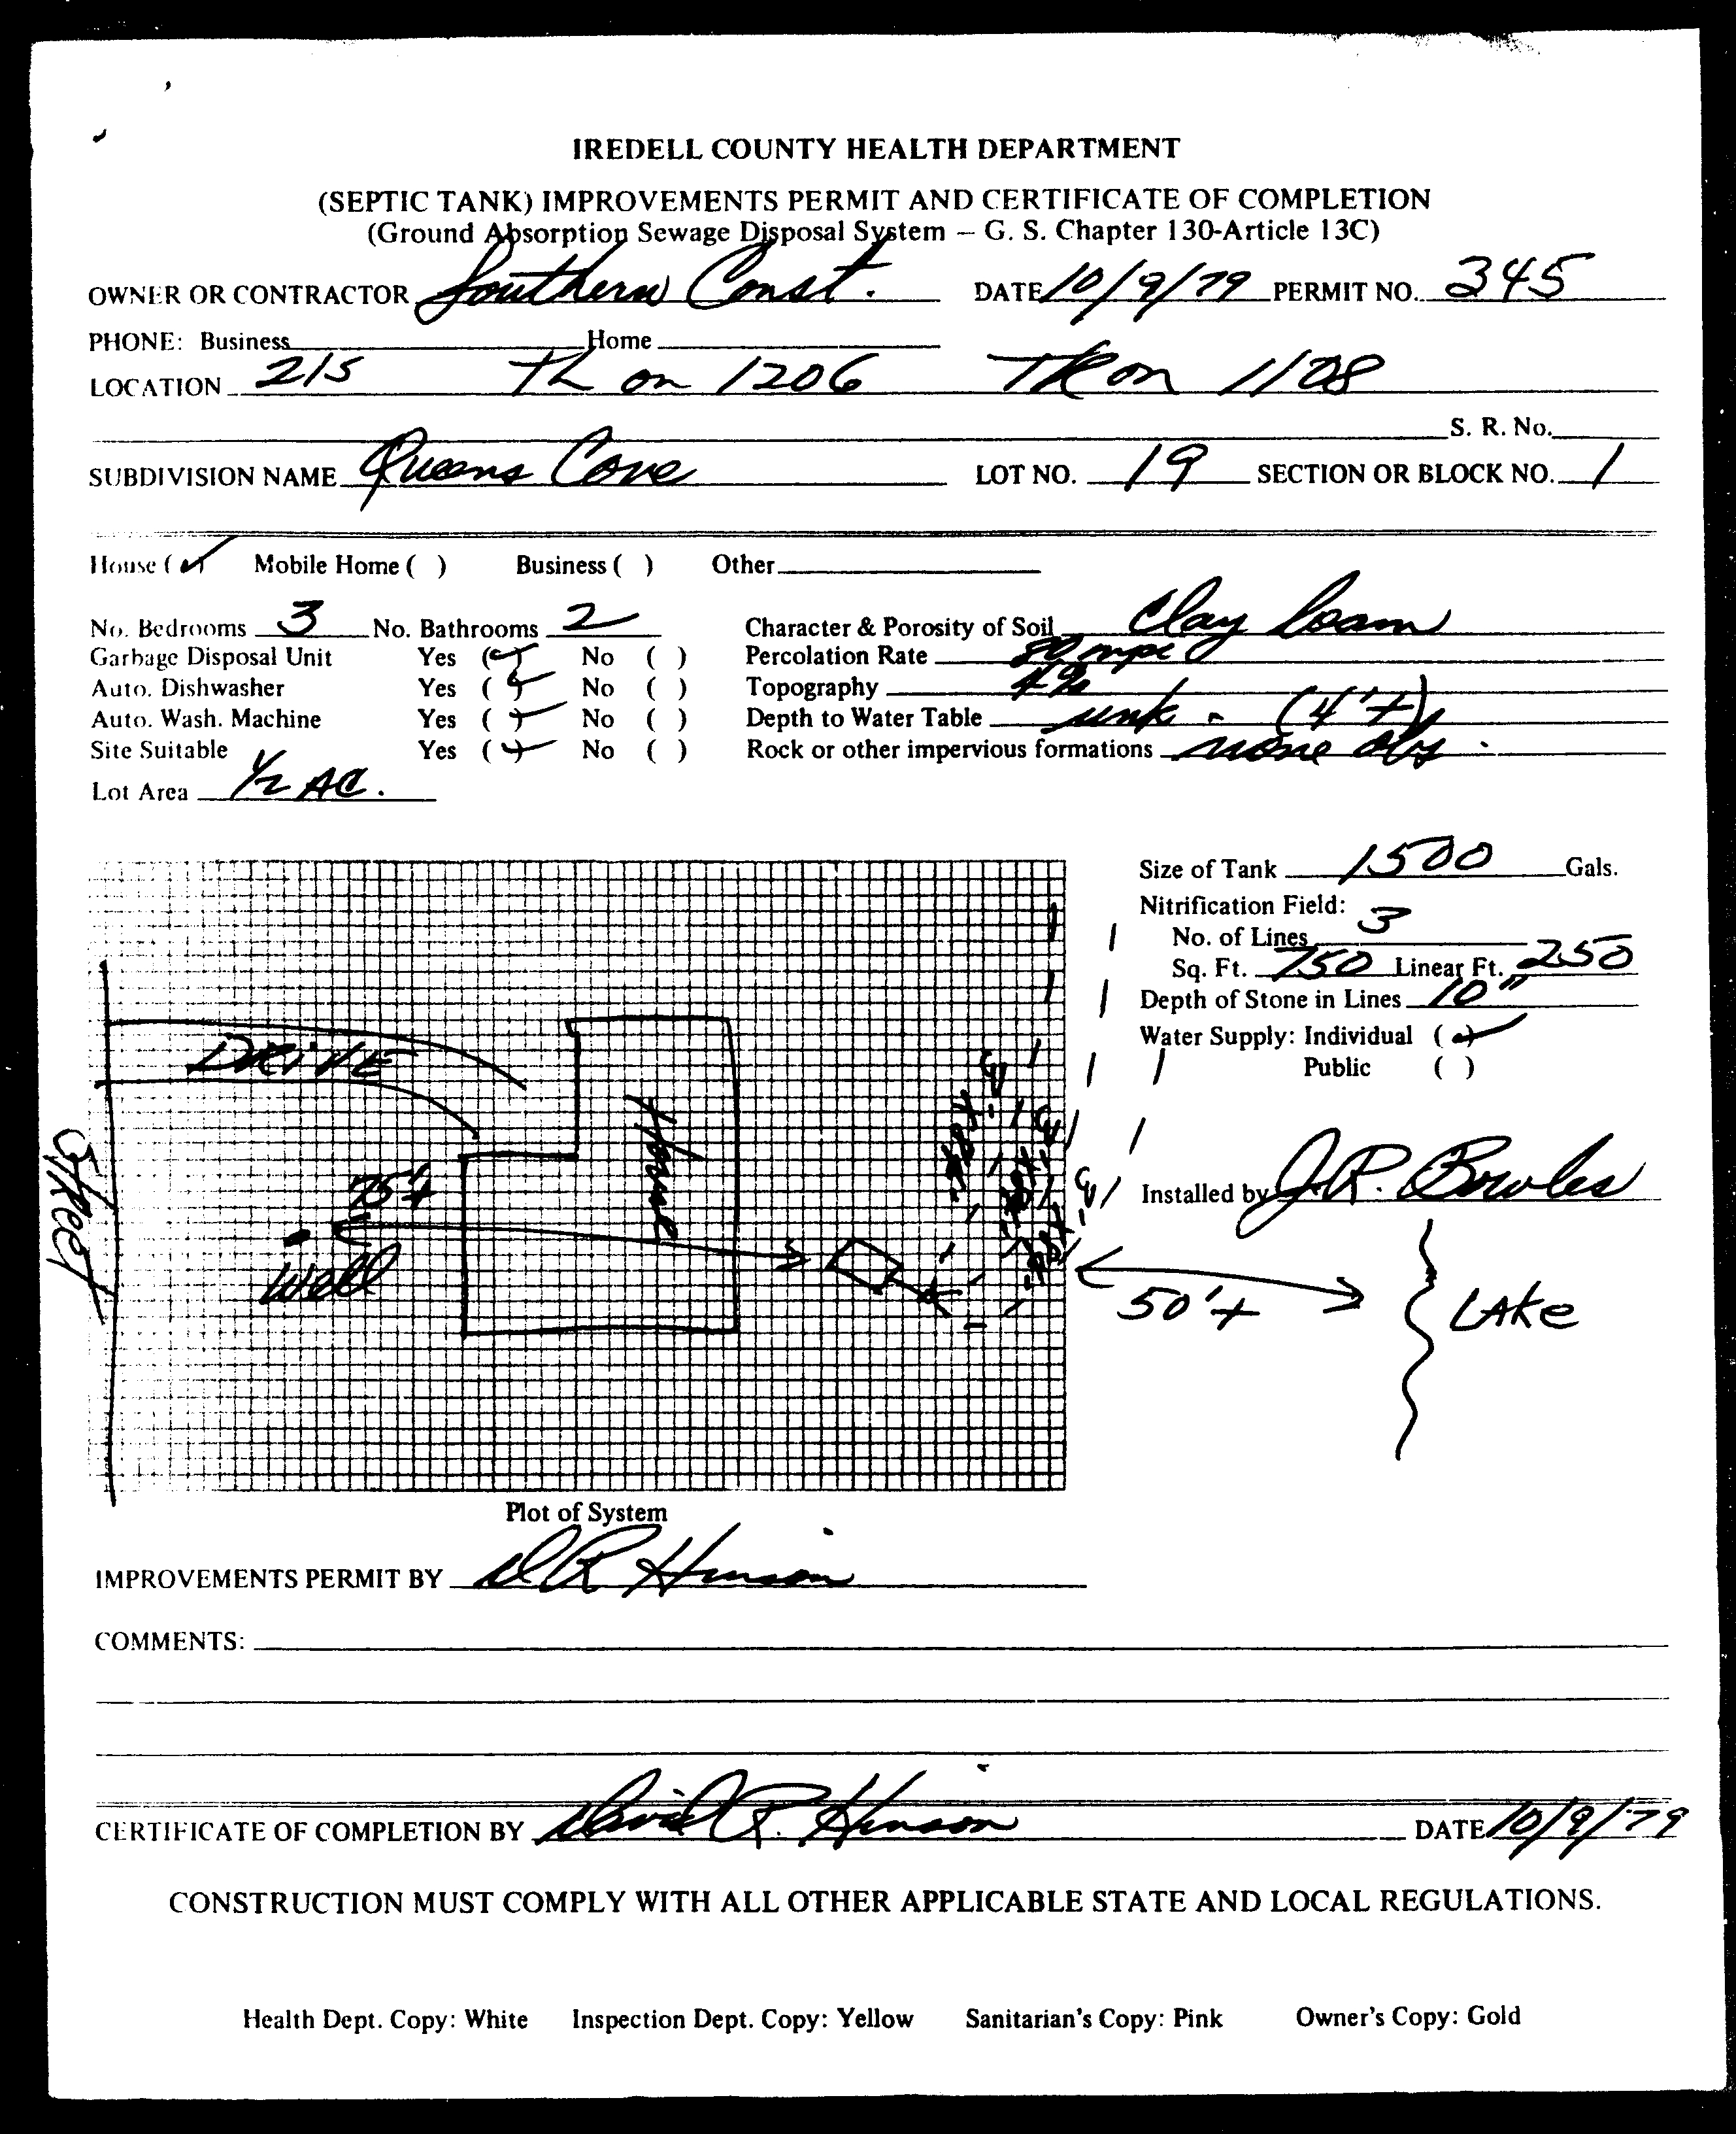 IREDELL COUNTY HEALTH DEPARTMENT
(SEPTIC TANK) IMPROVEMENTS PERMIT AND CERTIFICATE OF COMPLETION
(Ground Absorption Sewage Disposal System – G. S. Chapter 130-Article 13C)
OWNER OR CONTRACTOR Southern Const. DATE 10/9/79 PERMIT NO. 345
PHONE: Business Home
LOCATION 21S TL on 1206 TR on 1108
S. R. No.
SUBDIVISION NAME Queens Cove LOT NO. 19 SECTION OR BLOCK NO. 1
House (✓) Mobile Home ( ) Business ( ) Other
No. Bedrooms 3 No. Bathrooms 2 Character & Porosity of Soil Clay loam
Garbage Disposal Unit Yes (✓) No ( ) Percolation Rate 80 mpi
Auto. Dishwasher Yes (✓) No ( ) Topography 4%
Auto. Wash. Machine Yes (✓) No ( ) Depth to Water Table unk - (4'+)
Site Suitable Yes (✓) No ( ) Rock or other impervious formations none obs.
Lot Area 1/2 AC.
Size of Tank 1500 Gals.
Nitrification Field:
No. of Lines 3
Sq. Ft. 750 Linear Ft. 250
Depth of Stone in Lines 10"
Water Supply: Individual (✓)
Public ( )
DRIVE
House
Street
75'+
Well
Installed by J.R. Bowles
50'+
LAke
Plot of System
IMPROVEMENTS PERMIT BY D R Hinson
COMMENTS:
CERTIFICATE OF COMPLETION BY David R. Hinson DATE 10/9/79
CONSTRUCTION MUST COMPLY WITH ALL OTHER APPLICABLE STATE AND LOCAL REGULATIONS.
Health Dept. Copy: White Inspection Dept. Copy: Yellow Sanitarian's Copy: Pink Owner's Copy: Gold